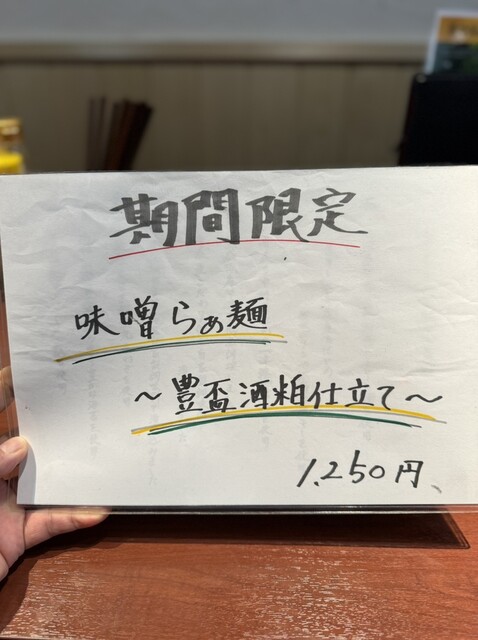 期間限定
味噌らぁ麺
～豊盃酒粕仕立て～
1,250円